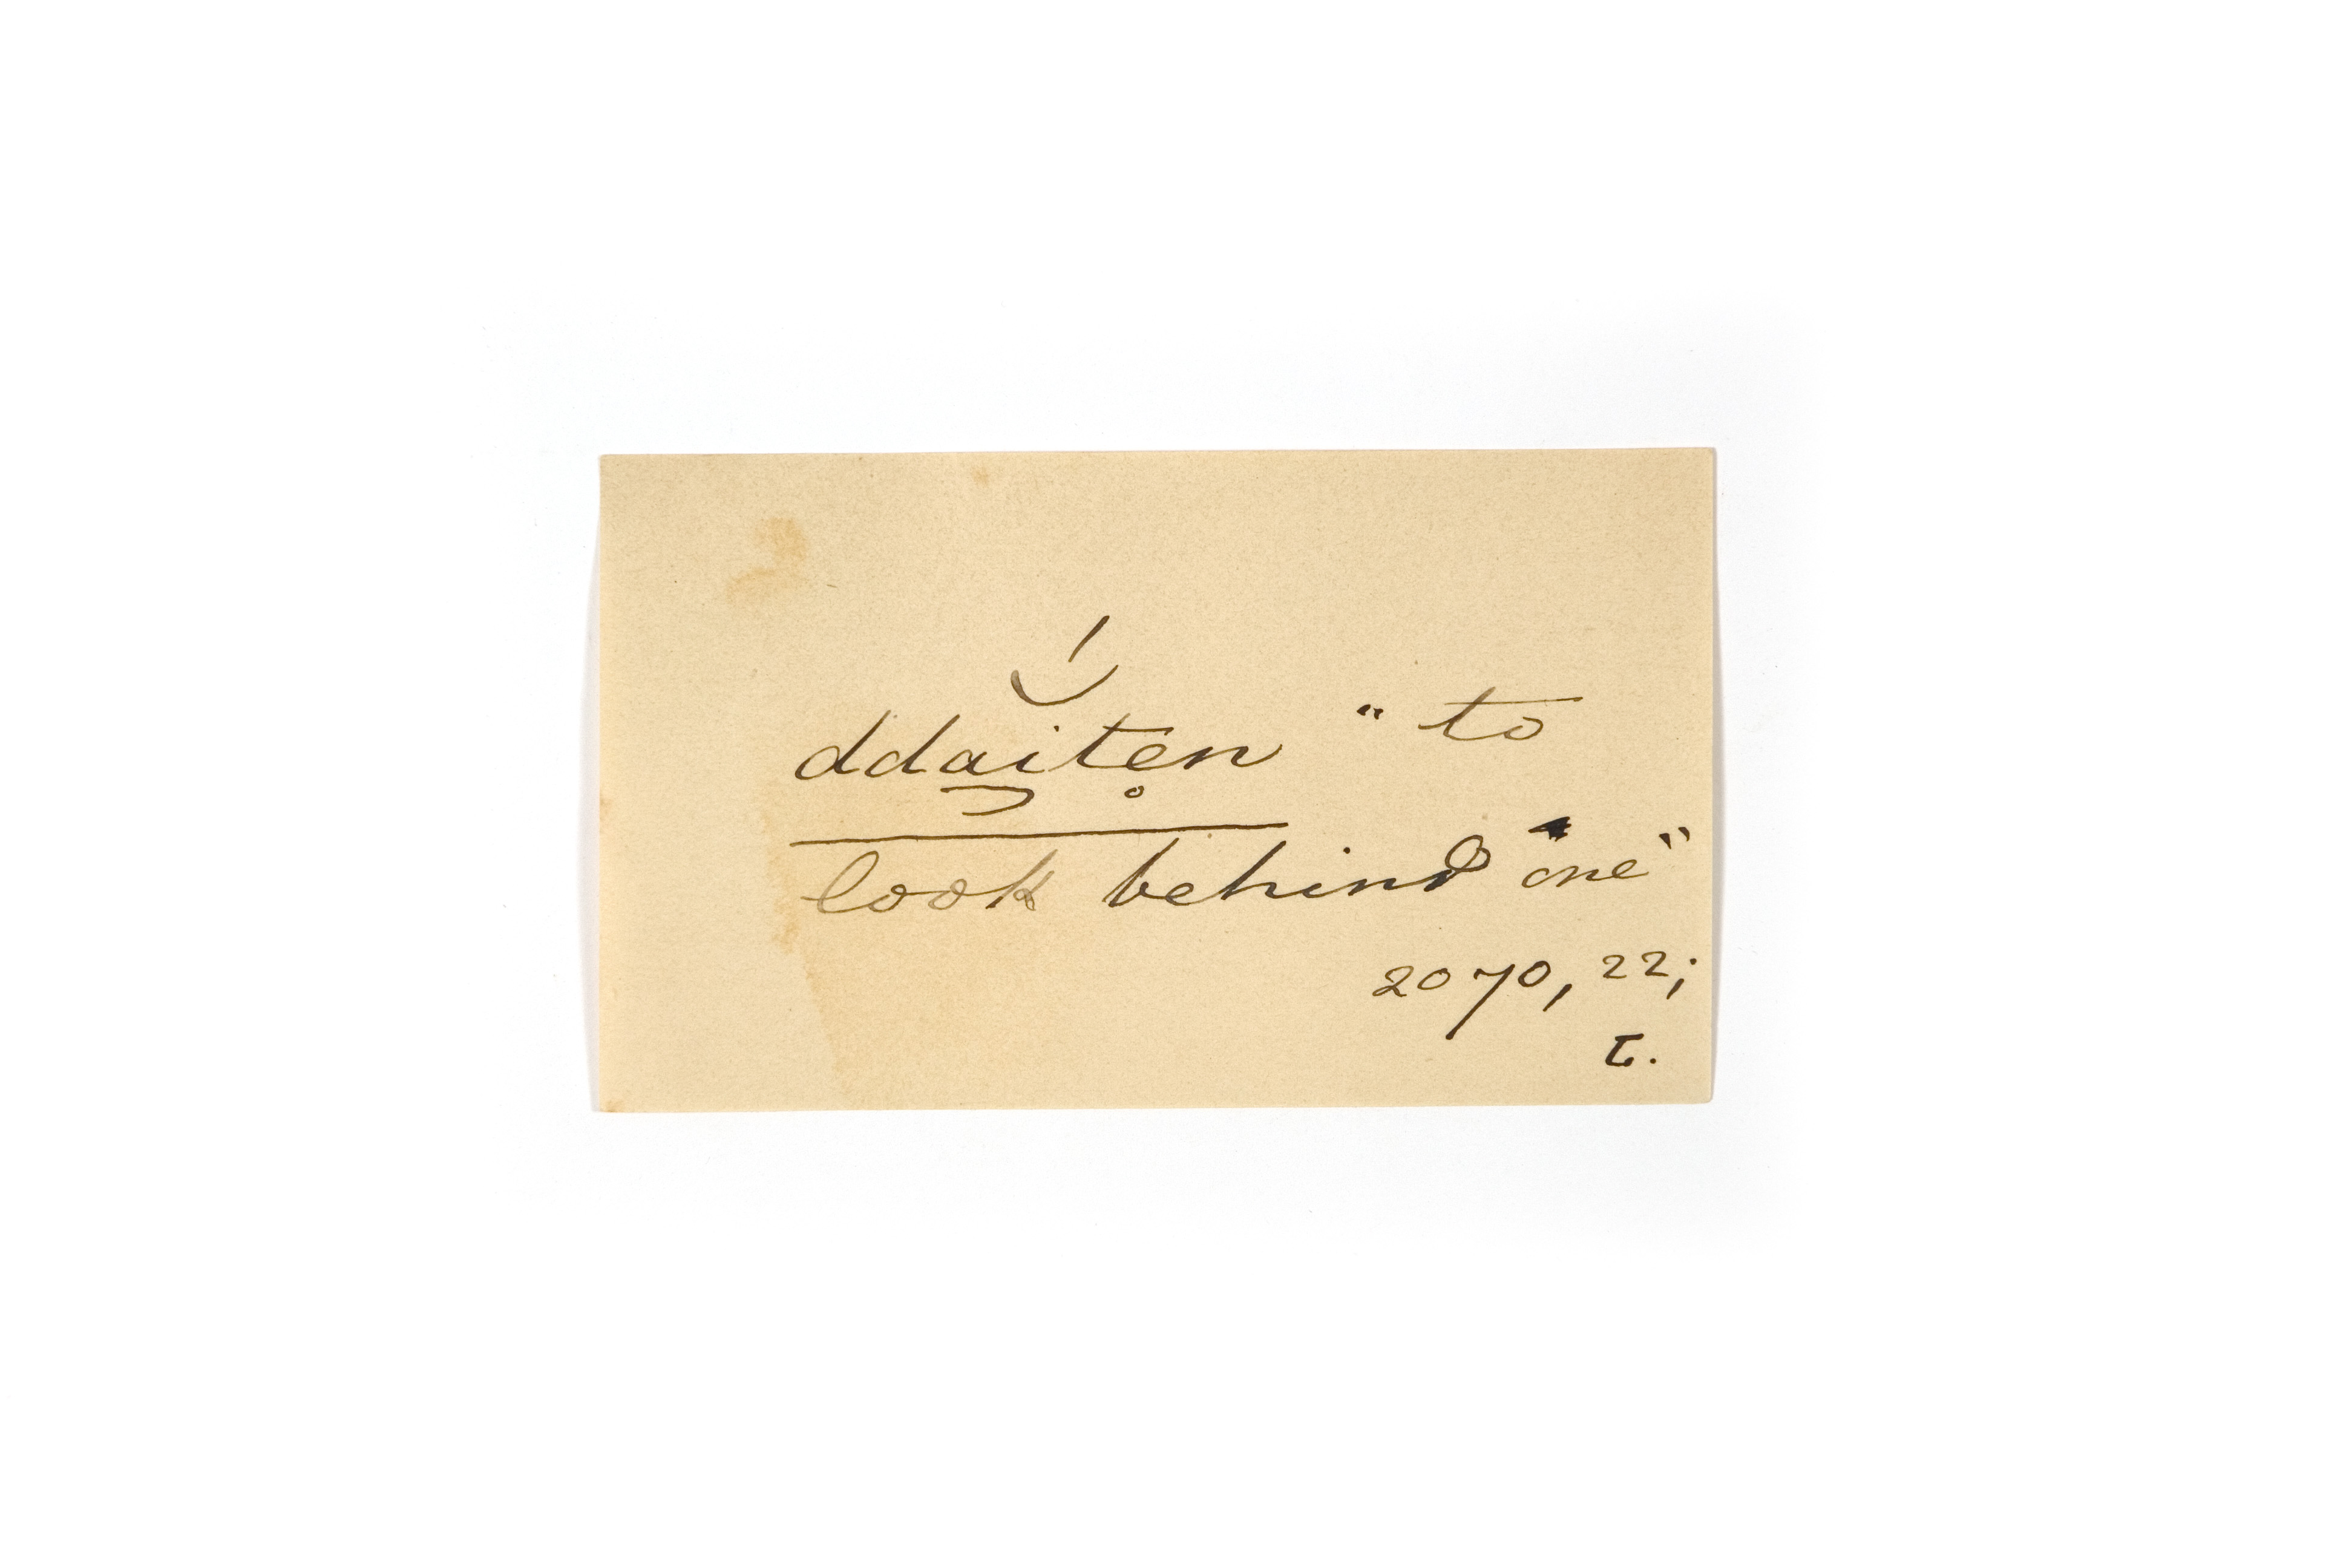 ddaiten " to
look behind one"
2070, 22;